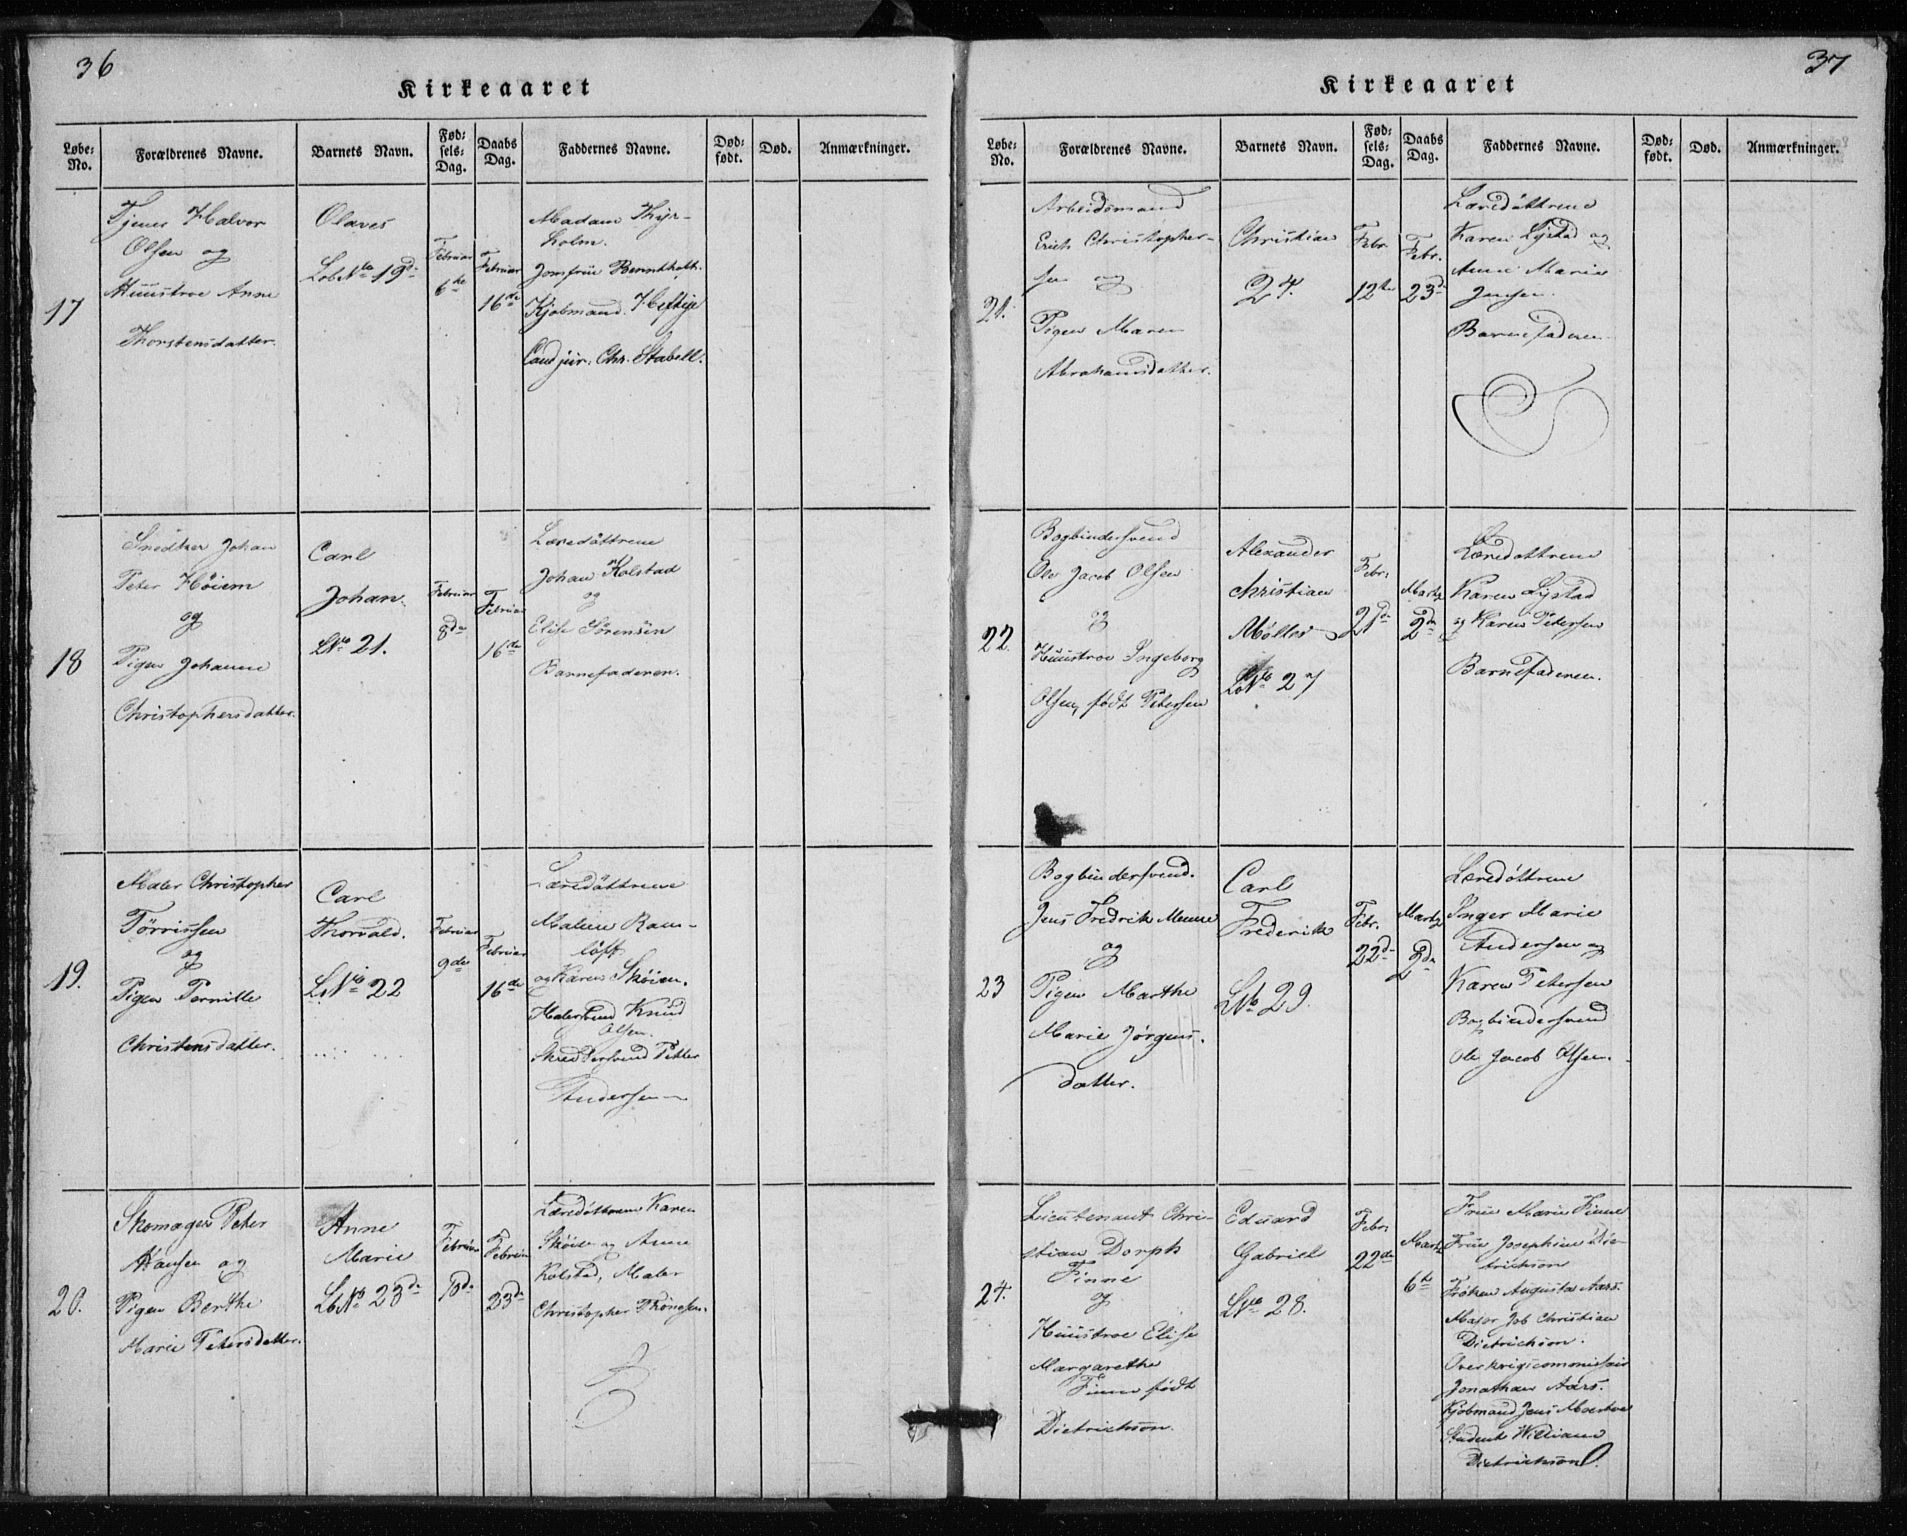 36
Kirkeaaret
Løbe: No.
Forældrenes Navne.
Barnets Navn.
Fød: sels: Dag.
Daabs Dag.
Faddernes Navne.
Død: født.
Død.
Anmærkninger.
17
Tjener Halvor
Olsen og
Huustroe Anne
Thorstensdatter.
Olaves
LobeNo 19de
Februar
6te
Februar
16de
Madam Thyr-
holm.
Jomfrue
Kjøbmand Heftye
Cand jur. Chr. Stabell.
18
Snedker Johan
Peter Höiem
og
Pigen Johanne
Christophersdatter.
Carl
Johan.
LNo 21.
Februar
8de
Februar
16de
Læredöttrene
Johan Kolstad
og
Elise Sörensen
Barnefaderen.
19.
Maler Christopher
Törrissen
og
Pigen Pernille
Christensdatter.
Carl
Thorvald.
L.No 22
Februar
9de
Februar
16de
Læredöttrene
Malene Ram-
löff
og Karen Sköien.
Malersvend Knud
Olsen.
Skredersvend Petter
Andersen
20.
Skomager Peter
Hansen og
Pigen Berthe
Marie Petersdatter.
Anne
Marie
LbNo 23de
Februar
10de
Februar
23de
Læredöttrene Karen
Sköien og Anne
Kolstad, Maler
Christopher
37
Kirkeaaret
Løbe: No.
Forældrenes Navne.
Barnets Navn.
Fød: sels: Dag.
Daabs Dag.
Faddernes Navne.
Død: født.
Død.
Anmærkninger.
21.
Arbeidsmand
Erich Christopher-
sen og
Pigen Maren
Abrahamsdatter.
Christian
24.
Febr.
12te
Febr.
23de
Læredöttrene
Karen Lystad og
Anne Marie
Jensen.
Barnefaderen
22.
Bogbindersvend
Ole Jacob Olsen
og
Huustroe Ingeborg
Olsen, födt Petersen
Alexander
Christian
Möller
LNo 27
Febr.
21de
Martz
2de
Læredöttrene
Karen Lystad
og Karen Petersen
Barnefaderen.
23
Bogbindersvend.
Jens Fredrik
og
Pigen Marthe
Marie Jörgens-
datter.
Carl
Frederik
LNo 29.
Febr.
22de
Martz
2de
Læredöttrene
Inger Marie
Andersen og
Karen Petersen
Bogbindersvend
Ole Jacob Olsen.
24.
Lieutenant Chri-
stian Dorph
Finne
og
Huustroe Elise
Margarethe
Finne födt
Dietrichson.
Eduard
Gabriel
LNo 28.
Febr.
22de
Martz
6te
Frue Marie Finne
Frue Josephine Die-
trichson
Fröken Augusta Aars.
Major Job Christian
Dietrichson.
Overkrigscommissair
Jonathan Aars.
Kjöbmand Jens
Student William
Dietrichson.